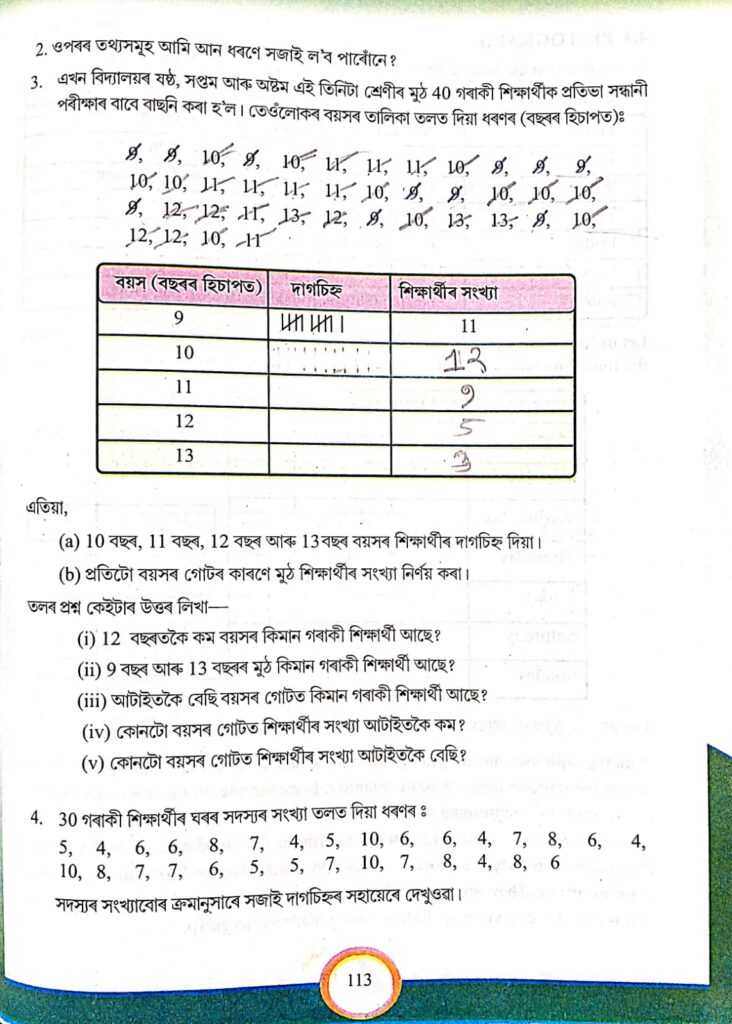 2. ওপৰৰ তথ্যসমূহ আমি আন ধৰণে সজাই ল'ব পাৰোঁনে?
3. এখন বিদ্যালয়ৰ ষষ্ঠ, সপ্তম আৰু অষ্টম এই তিনিটা শ্ৰেণীৰ মুঠ 40 গৰাকী শিক্ষাৰ্থীক প্ৰতিভা সন্ধানী
পৰীক্ষাৰ বাবে বাছনি কৰা হ'ল। তেওঁলোকৰ বয়সৰ তালিকা তলত দিয়া ধৰণৰ (বছৰৰ হিচাপত)ঃ
9, 9, 10, 9, 10, 11, 11, 11, 10, 9, 9, 9,
10, 10, 11, 11, 11, 11, 10, 9, 9, 10, 10, 10,
9, 12, 12, 11, 13, 12, 9, 10, 13, 13, 9, 10,
12, 12, 10, 11
বয়স (বছৰৰ হিচাপত) দাগচিহ্ন শিক্ষাৰ্থীৰ সংখ্যা
9 11
10 12
11 9
12 5
13 3
এতিয়া,
(a) 10 বছৰ, 11 বছৰ, 12 বছৰ আৰু 13 বছৰ বয়সৰ শিক্ষাৰ্থীৰ দাগচিহ্ন দিয়া।
(b) প্ৰতিটো বয়সৰ গোটৰ কাৰণে মুঠ শিক্ষাৰ্থীৰ সংখ্যা নিৰ্ণয় কৰা।
তলৰ প্ৰশ্ন কেইটাৰ উত্তৰ লিখা—
(i) 12 বছৰতকৈ কম বয়সৰ কিমান গৰাকী শিক্ষাৰ্থী আছে?
(ii) 9 বছৰ আৰু 13 বছৰৰ মুঠ কিমান গৰাকী শিক্ষাৰ্থী আছে?
(iii) আটাইতকৈ বেছি বয়সৰ গোটত কিমান গৰাকী শিক্ষাৰ্থী আছে?
(iv) কোনটো বয়সৰ গোটত শিক্ষাৰ্থীৰ সংখ্যা আটাইতকৈ কম?
(v) কোনটো বয়সৰ গোটত শিক্ষাৰ্থীৰ সংখ্যা আটাইতকৈ বেছি?
4. 30 গৰাকী শিক্ষাৰ্থীৰ ঘৰৰ সদস্যৰ সংখ্যা তলত দিয়া ধৰণৰ ঃ
5, 4, 6, 6, 8, 7, 4, 5, 10, 6, 6, 4, 7, 8, 6, 4,
10, 8, 7, 7, 6, 5, 5, 7, 10, 7, 8, 4, 8, 6
সদস্যৰ সংখ্যাবোৰ ক্ৰমানুসাৰে সজাই দাগচিহ্নৰ সহায়েৰে দেখুওৱা।
113